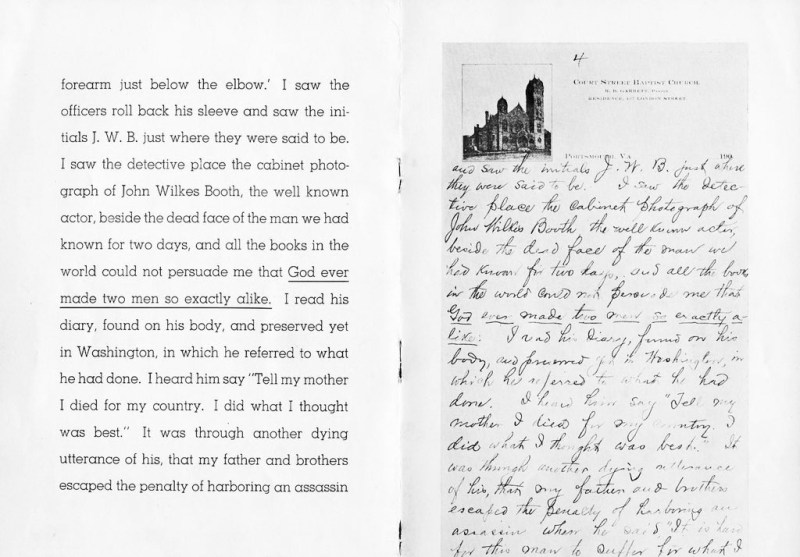 forearm just below the elbow.' I saw the
officers roll back his sleeve and saw the ini-
tials J. W. B. just where they were said to be.
I saw the detective place the cabinet photo-
graph of John Wilkes Booth, the well known
actor, beside the dead face of the man we had
known for two days, and all the books in the
world could not persuade me that God ever
made two men so exactly alike. I read his
diary, found on his body, and preserved yet
in Washington, in which he referred to what
he had done. I heard him say "Tell my mother
I died for my country. I did what I thought
was best." It was through another dying
utterance of his, that my father and brothers
escaped the penalty of harboring an assassin
4
Court Street Baptist Church
R. B. Garrett, Pastor
Residence, London Street
Portsmouth, Va. 190
and saw the initials J. W. B. just where
they were said to be. I saw the detec-
tive place the cabinet photograph of
John Wilkes Booth, the well known actor,
beside the dead face of the man we
had known for two days, and all the books
in the world could not persuade me that
God ever made two men so exactly a-
like. I read his Diary, found on his
body, and preserved yet in Washington, in
which he referred to what he had
done. I heard him say "Tell my
mother I died for my country. I
did what I thought was best." It
was through another dying utterance
of his, that my father and brothers
escaped the penalty of harboring an
assassin when he said "It is hard
for this man to suffer for what I